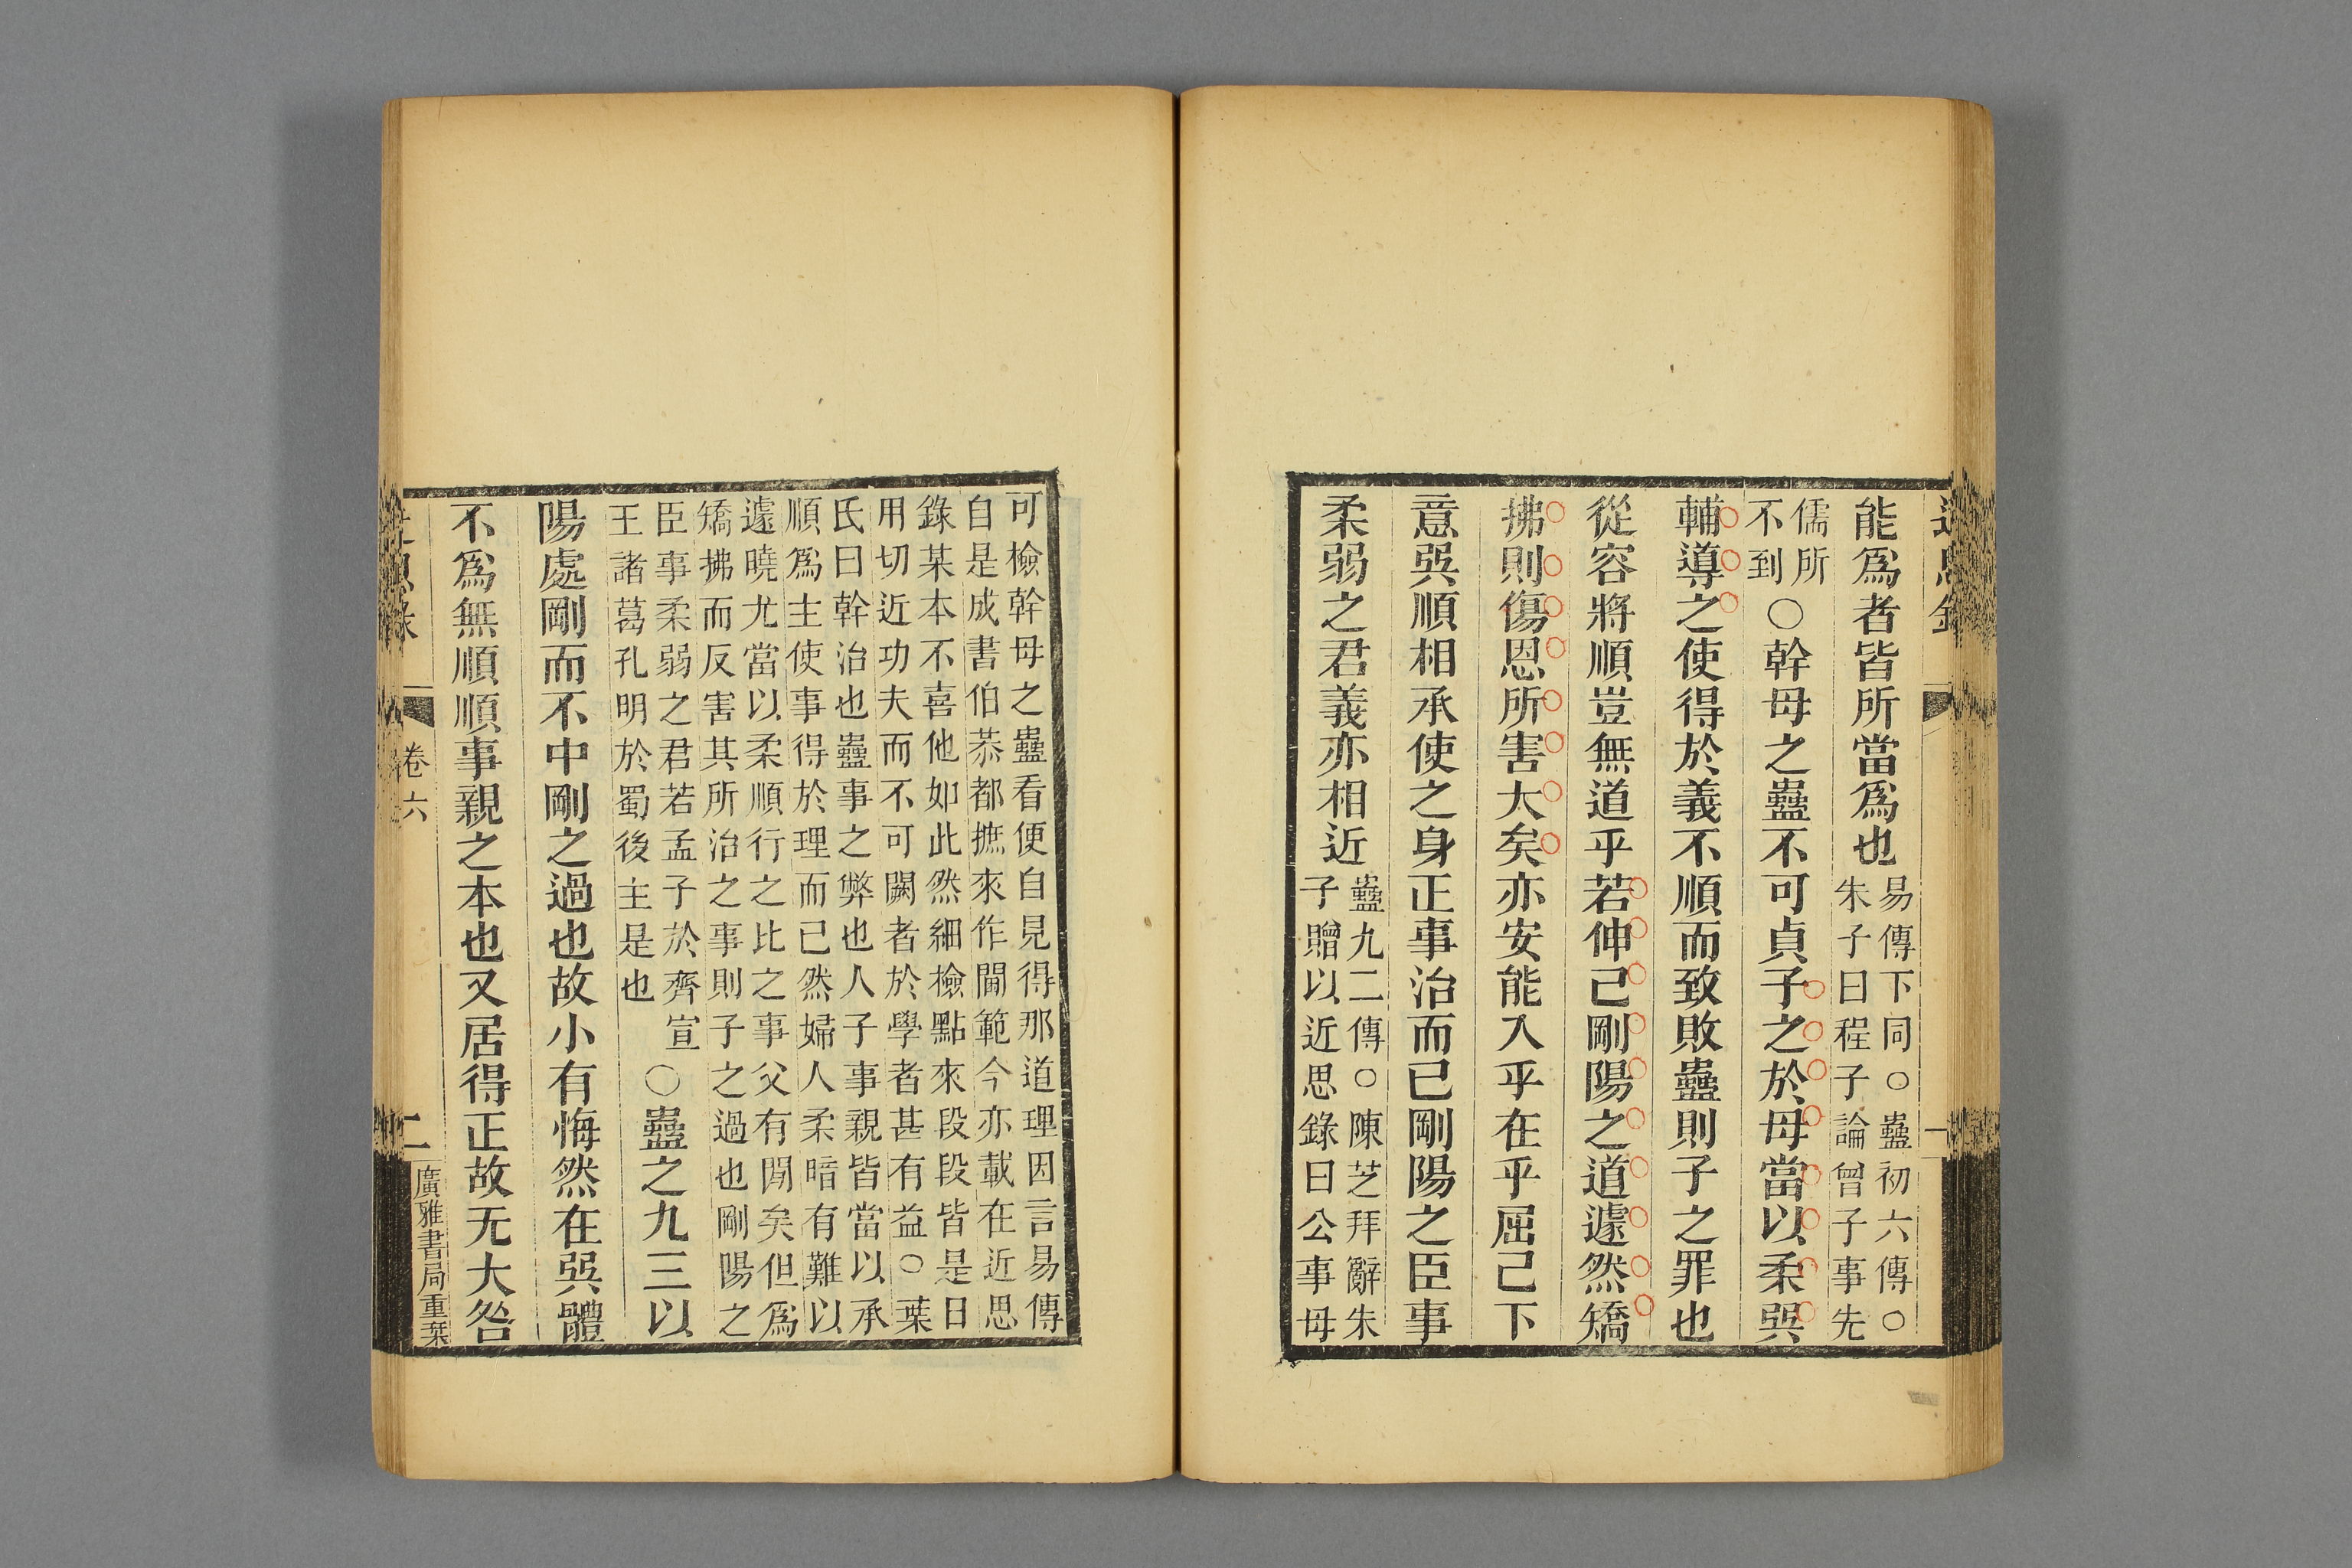 能爲者皆所當爲也易傳下同○蠱初六傳○
朱子曰程子論曾子事先
儒所
不到○幹母之蠱不可貞子之於母當以柔巽
輔導之使得於義不順而致敗蠱則子之罪也
從容將順豈無道乎若伸己剛陽之道遽然矯
拂則傷恩所害大矣亦安能入乎在乎屈己下
意巽順相承使之身正事治而已剛陽之臣事
柔弱之君義亦相近蠱九二傳○陳芝拜辭朱
子贈以近思錄曰公事母
可檢幹母之蠱看便自見得那道理因言易傳
自是成書伯恭都摭來作閫範今亦載在近思
錄某本不喜他如此然細檢點來段段皆是日
用切近功夫而不可闕者於學者甚有益○葉
氏曰幹治也蠱事之弊也人子事親皆當以承
順爲主使事得於理而已然婦人柔暗有難以
遽曉尤當以柔順行之比之事父有閒矣但爲
矯拂而反害其所治之事則子之過也剛陽之
臣事柔弱之君若孟子於齊宣
王諸葛孔明於蜀後主是也○蠱之九三以
陽處剛而不中剛之過也故小有悔然在巽體
不爲無順順事親之本也又居得正故无大咎
卷六
二
廣雅書局重栞